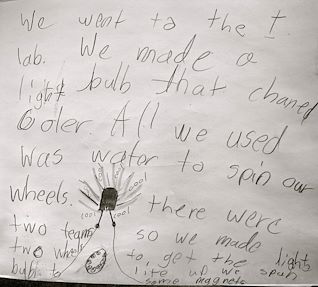 We went to the I.
lab. We made a
light bulb that chaned
Coler. All we used
was water to spin our
wheels.
cool
cool
cool
cool
there were
two teams so we made
two wheels to get the lights
bulbs to life up we spun
some magnets